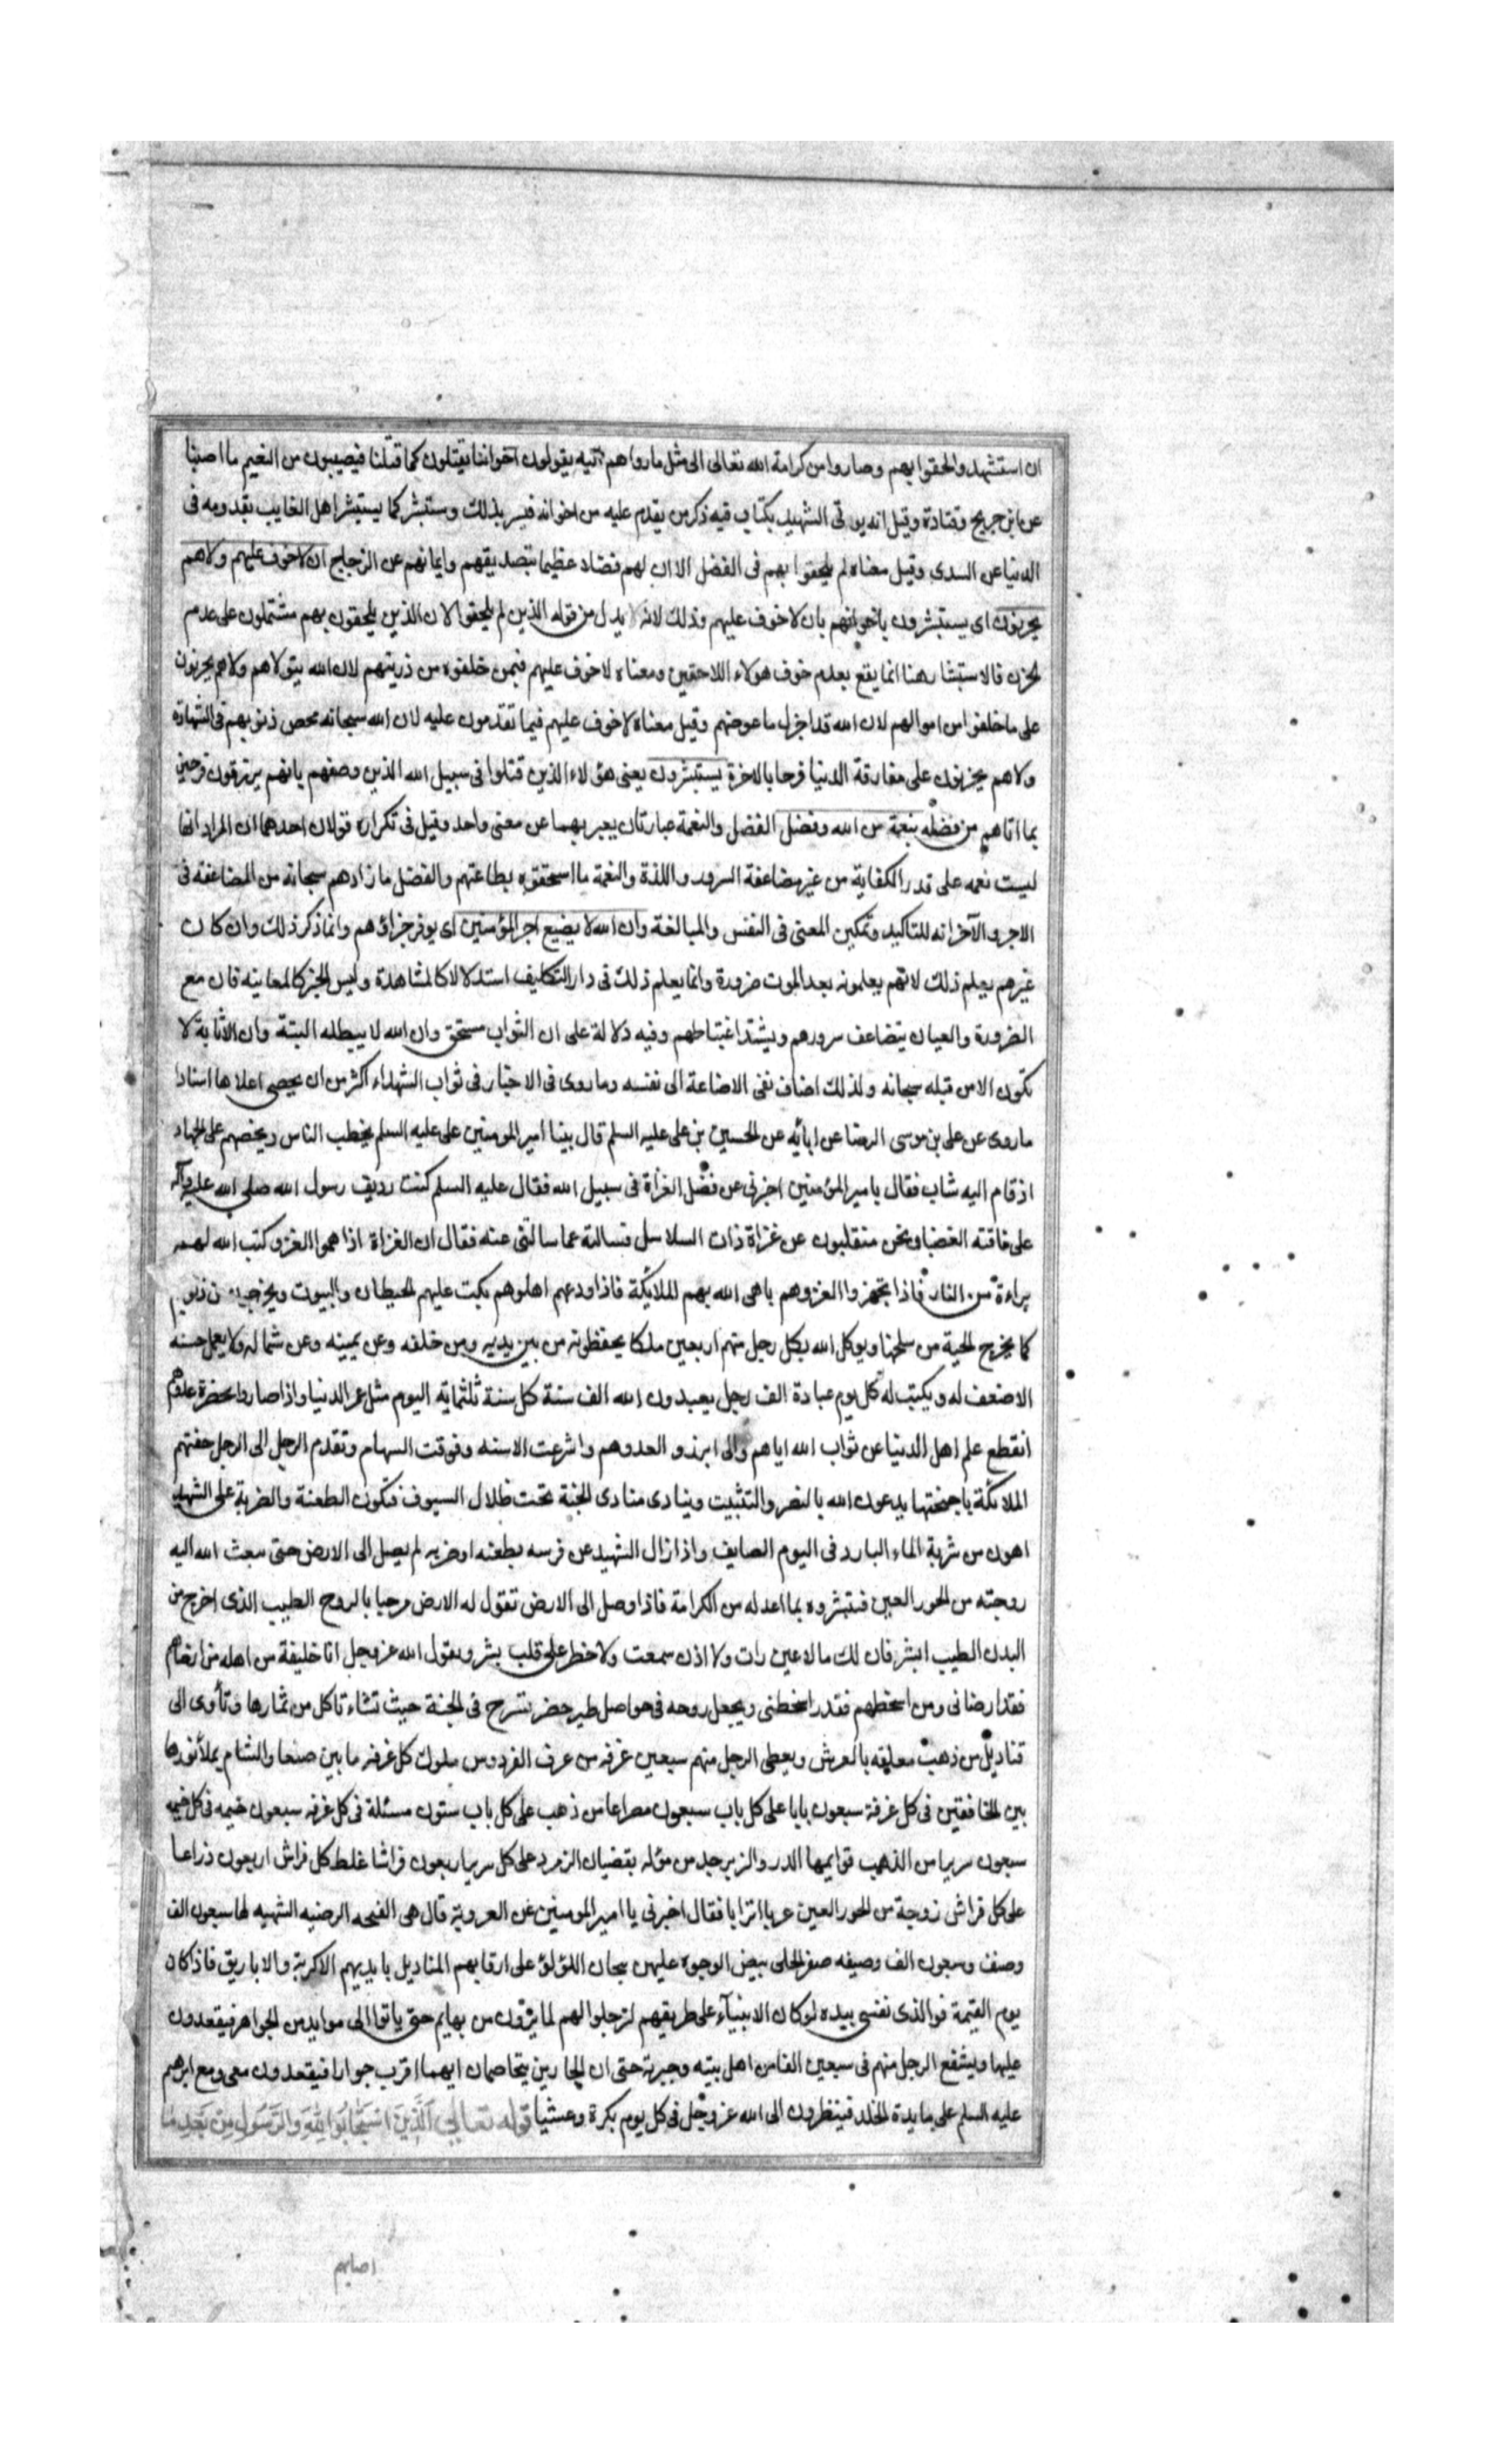 ان استشهد والحقوا بهم وصاروا من كرامة الله تعالى الى مثل ما رواهم فيه يقولون اخواننا يقتلون كما قتلنا فيصيبون من النعيم ما اصبنا
عن ابن جريج وقتادة وقيل انه يوتى الشهيد بكتاب فيه ذكر من يقدم عليه من اخوانه فيسر بذلك وستبشر كما يستبشر اهل الغايب بقدومه فى
الدنيا عن السدى وقيل معناه لم يلحقوا بهم فى الفضل الا ان لهم فضلا عظيما بتصديقهم وايمانهم عن الزجاج ان لا خوف عليهم ولا هم
يحزنون اى يستبشرون باخوانهم بان لا خوف عليهم وذلك لانه بدل من قوله الذين لم يلحقوا لان الذين يلحقون بهم مشتملون على عدم
الحزن فالاستبشار هنا انما يقع بعدم خوف هولاء اللاحقين ومعناه لا خوف عليهم فيمن خلفوه من ذريتهم لان الله يتولاهم ولا هم يحزنون
على ما خلفوا من اموالهم لان الله قد اجزل ما عوضهم وقيل معناه لا خوف عليهم فيما تقدمون عليه لان الله سبحانه محص ذنوبهم فى الشهادة
ولا هم يحزنون على مفارقة الدنيا فرحا بالاخرة يستبشرون يعنى هؤلاء الذين قتلوا فى سبيل الله الذين وصفهم بانهم يرزقون فرحين
بما اتاهم من فضله بنعمة من الله وفضل الفضل والنعمة عبارتان يعبر بهما عن معنى واحد وقيل فى تكراره قولان احدهما ان المراد انها
ليست نعمه على قدر الكفاية من غير مضاعفة السرور واللذة والنعمة ما استحقوه بطاعتهم والفضل ما زادهم سبحانه من المضاعفة فى
الاجر والآخر انه للتاكيد وتمكين المعنى فى النفس والمبالغة وان الله لا يضيع اجر المؤمنين اى يوفر جزاؤهم وانما ذكر ذلك وان كان
غيرهم يعلم ذلك لانهم يعلمونه بعد الموت ضرورة وانما يعلم ذلك فى دار التكليف استدلالا كالمشاهدة وليس الخبر كالمعاينه فان مع
الضرورة والعيان يتضاعف سرورهم ويشتد اغتباطهم وفيه دلالة على ان الثواب مستحق وان الله لا يبطله البتة وان الاثابة لا
تكون الا من قبله سبحانه ولذلك اضاف نفى الاضاعة الى نفسه وما روى فى الاخبار فى ثواب الشهداء اكثر من ان يحصى اعلاها اسنادا
ما روى عن على بن موسى الرضا عن ابائه عن الحسين بن على عليه السلم قال بينا امير المومنين على عليه السلم يخطب الناس ويحضهم على الجهاد
اذ قام اليه شاب فقال يا امير المؤمنين اخبرنى عن فضل الغزاة فى سبيل الله فقال عليه السلم كنت رديف رسول الله صلى الله عليه وآله
على ناقته الغضبا ونحن منقلبون عن غزاة ذات السلاسل فسالته عما سالتنى عنه فقال ان الغزاة اذا هموا الغزو كتب الله لهم
براءة من النار فاذا تجهزوا لغزوهم باهى الله بهم الملائكة فاذا ودعهم اهلوهم بكت عليهم الحيطان والبيوت ويخرجون من ذنوبهم
كما يخرج الحية من سلخها ويوكل الله بكل رجل منهم اربعين ملكا يحفظونه من بين يديه ومن خلفه وعن يمينه وعن شماله ولا يعمل حسنه
الا ضعف له ويكتب له كل يوم عبادة الف رجل يعبدون الله الف سنة كل سنة ثلثمايه اليوم مثل عمر الدنيا واذا صاروا بحضرة عدوهم
انقطع علم اهل الدنيا عن ثواب الله اياهم والى ابرزو العدوهم واشرعت الاسنه وفوقت السهام وتقدم الرجل الى الرجل حفتهم
الملائكة باجنحتها يدعون الله بالنصر والتثبيت وينادى منادى الجنة تحت ظلال السيوف فتكون الطعنة والضربة على الشهيد
اهون من شربة الماء البارد فى اليوم الصايف واذا زال الشهيد عن فرسه بطعنه او ضربه لم يصل الى الارض حتى يبعث الله اليه
زوجته من الحور العين فتبشره بما اعد له من الكرامة فاذا وصل الى الارض تقول له الارض مرحبا بالروح الطيب الذى اخرج من
البدن الطيب ابشر فان لك ما لا عين رات ولا اذن سمعت ولا خطر على قلب بشر ويقول الله عز وجل انا خليفة من اهله من ارضاهم
فقد ارضانى ومن اسخطهم فقد اسخطنى ويجعل روحه فى حواصل طير خضر تسرح فى الجنة حيث تشاء تاكل من ثمارها وتأوى الى
قناديل من ذهب معلقه بالعرش ويعطى الرجل منهم سبعين غرفه من غرف الفردوس سلوك كل غرفه ما بين صنعا والشام يملأ نورها
بين الخافقين فى كل غرفة سبعون بابا على كل باب سبعون مصراعا من ذهب على كل باب ستون مسئلة فى كل غرفه سبعون خيمه فى كل خيمه
سبعون سريرا من الذهب قوايمها الدر والزبرجد من موله بقضبان الزمرد على كل سرير اربعون فراشا غلظ كل فراش اربعون ذراعا
على كل فراش زوجة من الحور العين عربا اترابا فقال اخبرنى يا امير المومنين عن العروبة قال هى الغنجه الرضيه الشهيه لها سبعون الف
وصف وسبعون الف وصيفه صفر الحلى بيض الوجوه عليهن تيجان اللؤلؤ على ارقابهم المناديل بايديهم الاكربة والاباريق فاذا كان
يوم القيمة فوالذى نفسى بيده لو كان الانبيآء على طريقهم لترجلوا لهم لما يرون من بهايهم حتى ياتوا الى موايد من الجواهر فيقعدون
عليها ويشفع الرجل منهم فى سبعين الفا من اهل بيته وجيرته حتى ان الجارين يتخاصمان ايهما اقرب جوارا فيقعدون معى ومع ابرهيم
عليه السلم على مايدة الخلد فينظرون الى الله عز وجل فى كل يوم بكرة وعشيا قوله تعالى الَّذِينَ اسْتَجَابُوا لِلَّهِ وَالرَّسُولِ مِنْ بَعْدِ مَا
اصابهم